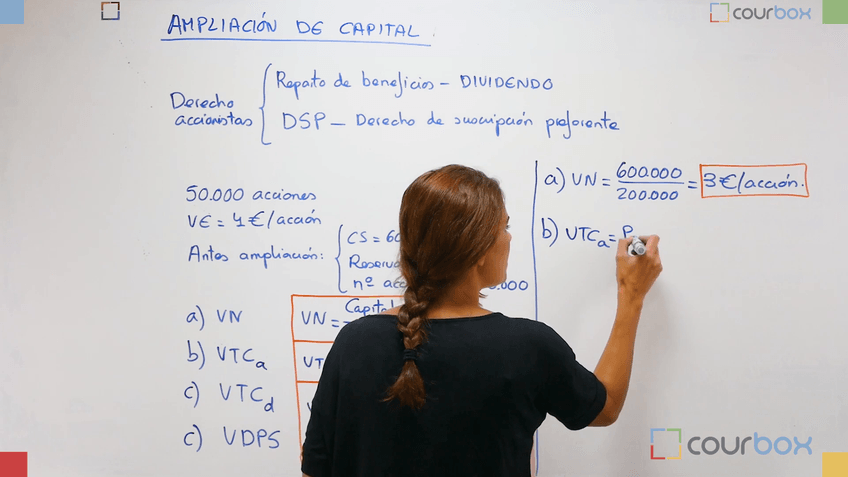 AMPLIACIÓN DE CAPITAL.
courbox
Derecho accionistas
Reparto de beneficios - DIVIDENDO
DSP - Derecho de suscripción preferente
50.000 acciones
VE = 4€/acción
Antes ampliación:
CS = 60
Reserva
nº acc
0.000
a) VN
b) VTCa
c) VTCd
c) VDPS
VN = Capital
VT
a) VN = 600.000 / 200.000 = 3€/acción.
b) VTCa = P
courbox